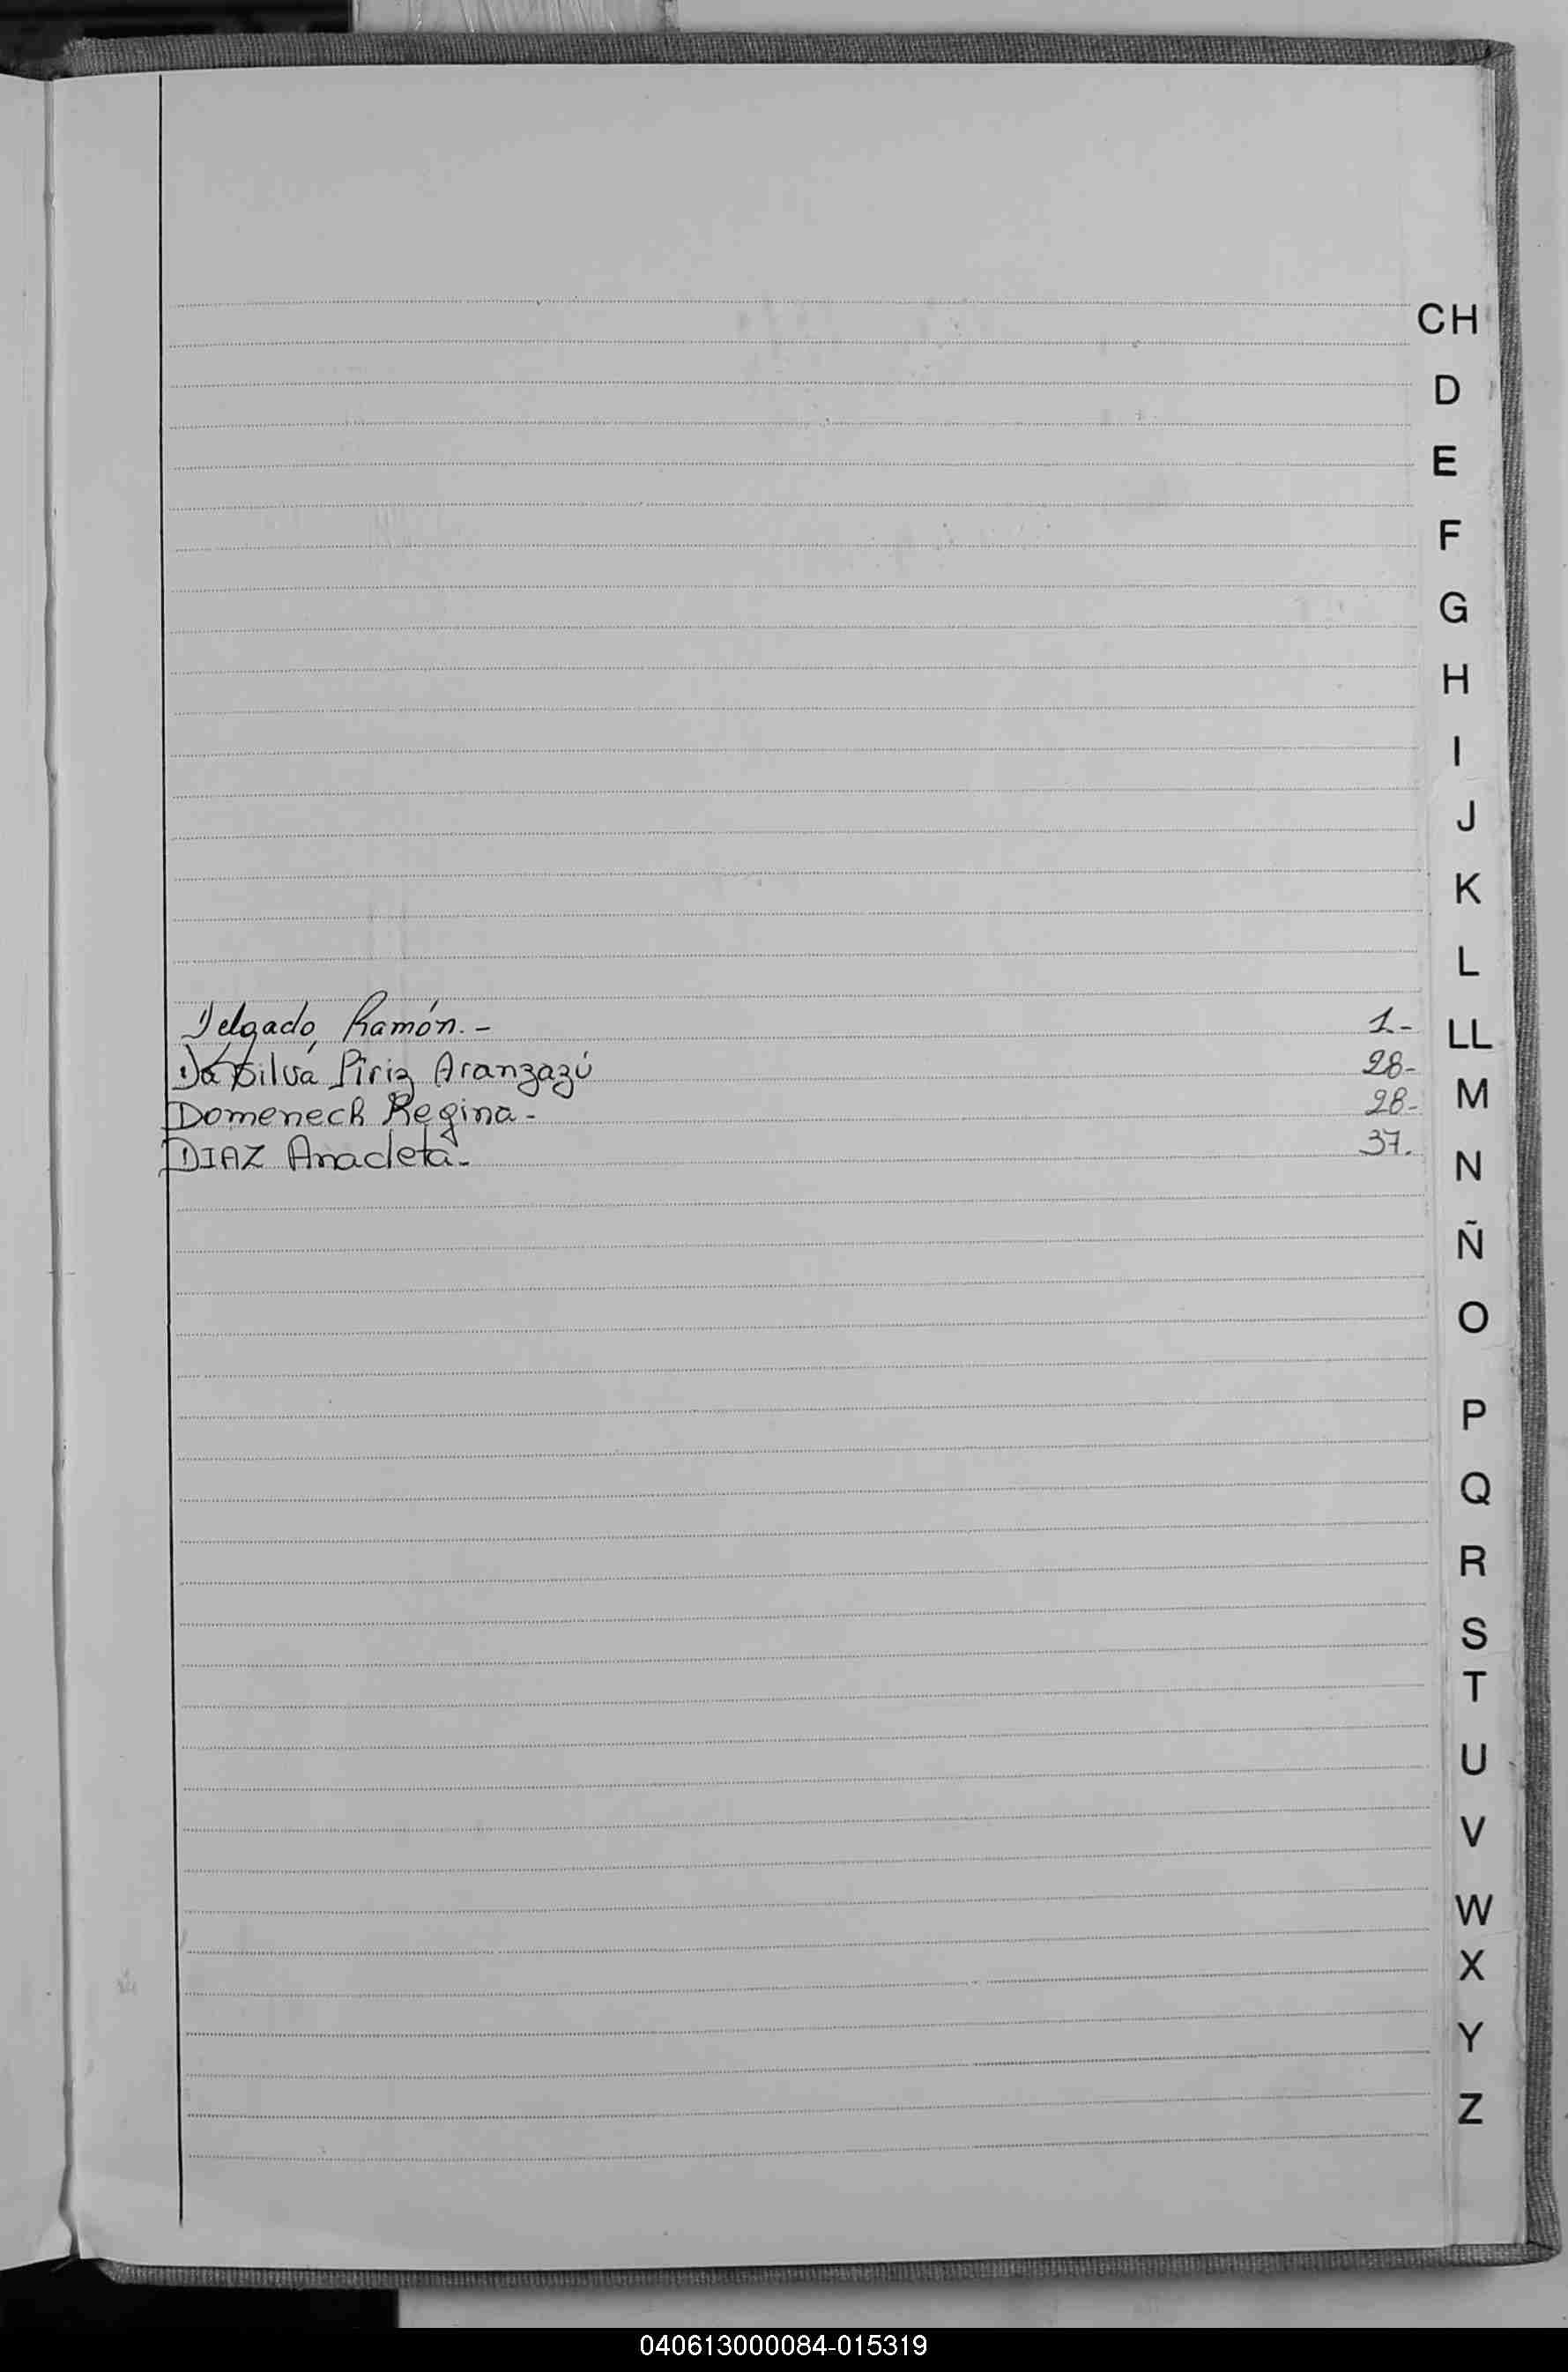 CH
D
E
F
G
H
I
J
K
L
Delgado, Ramón.- 1.-
LL
Da Silva Piriz Aranzazú 28-
M
Domenech Regina- 28-
DIAZ Anacleta.- 37.
N
Ñ
O
P
Q
R
S
T
U
V
W
X
Y
Z
040613000084-015319